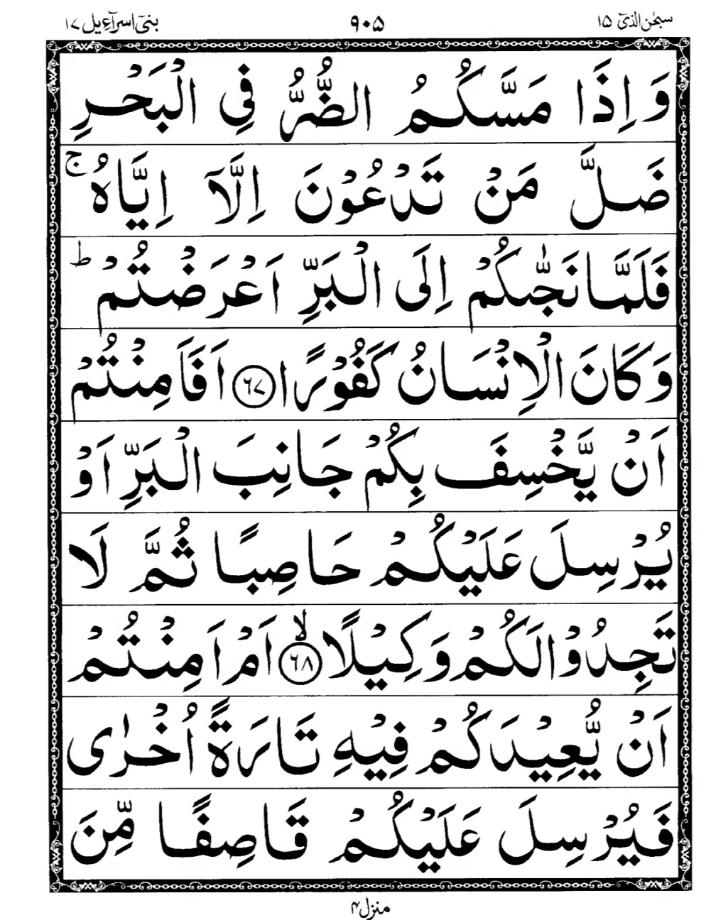 سبحٰن الذیٓ ١٥ ٩٠٥ بنیٓ اسرآءیل ١٧
وَاِذَا مَسَّكُمُ الضُّرُّ فِي الْبَحْرِ
ضَلَّ مَنْ تَدْعُوْنَ اِلَّاۤ اِيَّاهُ ۚ
فَلَمَّا نَجّٰىكُمْ اِلَى الْبَرِّ اَعْرَضْتُمْ ؕ
وَكَانَ الْاِنْسَانُ كَفُوْرًا ﴿٦٧﴾ اَفَاَمِنْتُمْ
اَنْ يَّخْسِفَ بِكُمْ جَانِبَ الْبَرِّ اَوْ
يُرْسِلَ عَلَيْكُمْ حَاصِبًا ثُمَّ لَا
تَجِدُوْا لَكُمْ وَكِيْلًا ۙ﴿٦٨﴾ اَمْ اَمِنْتُمْ
اَنْ يُّعِيْدَكُمْ فِيْهِ تَارَةً اُخْرٰى
فَيُرْسِلَ عَلَيْكُمْ قَاصِفًا مِّنَ
منزل ۴